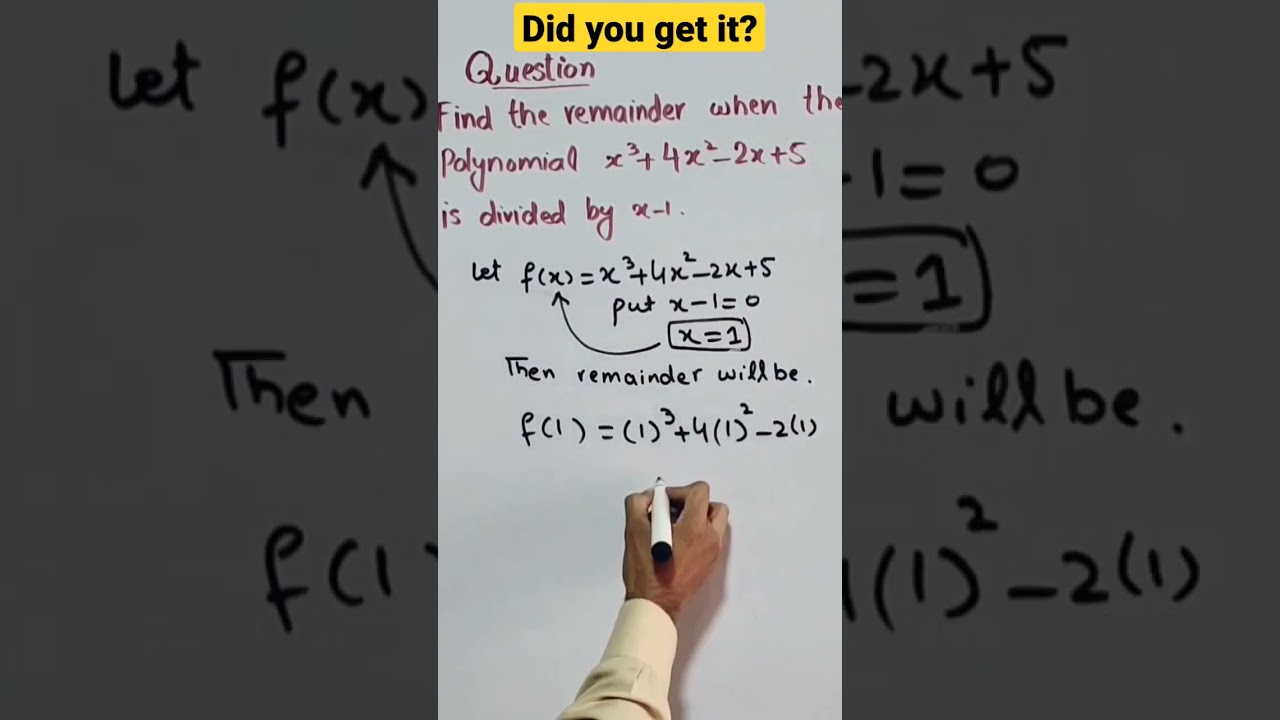 Did you get it?
Question
Find the remainder when the
Polynomial x³+4x²-2x+5
is divided by x-1.
Let f(x)=x³+4x²-2x+5
put x-1=0
x=1
Then remainder will be.
f(1)=(1)³+4(1)²-2(1)
Let f(x)
-2x+5
-1=0
=1
Then
will be.
f(1
(1)²-2(1)